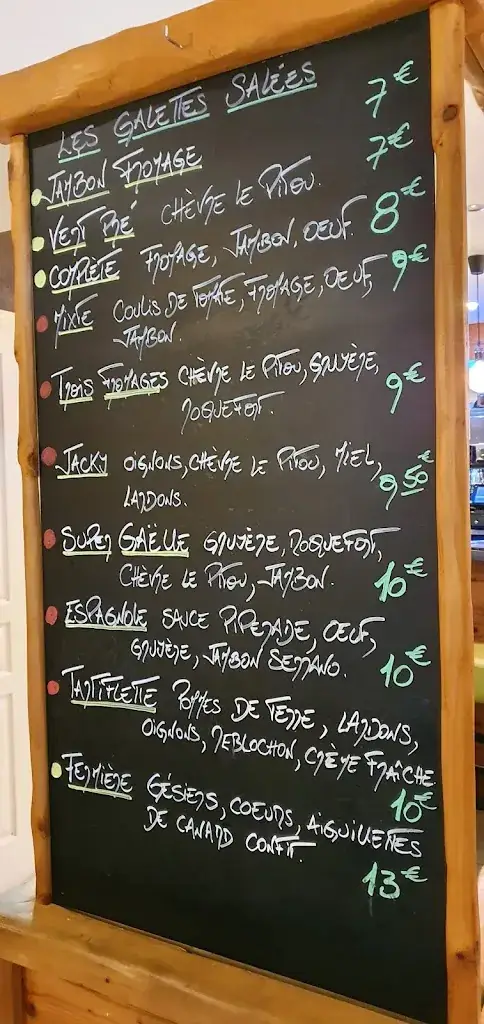 LES GALETTES SALÉES
JAMBON FROMAGE 7€
VENT RÉ CHÈVRE LE PITOU. 7€
COMPLÈTE FROMAGE, JAMBON, OEUF. 8€
MIXTE COULIS DE TOMATE, FROMAGE, OEUF, 9€
JAMBON.
TROIS FROMAGES CHÈVRE LE PITOU, GRUYÈRE,
ROQUEFORT. 9€
JACKY OIGNONS, CHÈVRE LE PITOU, MIEL,
LARDONS. 9,50€
SUPER GAËLLE GRUYÈRE, ROQUEFORT,
CHÈVRE LE PITOU, JAMBON. 10€
ESPAGNOLE SAUCE PIPERADE, OEUF,
GRUYÈRE, JAMBON SERRANO. 10€
TARTIFLETTE POMMES DE TERRE, LARDONS,
OIGNONS, REBLOCHON, CRÈME FRAÎCHE
10€
FERMIÈRE GÉSIERS, COEURS, AIGUILLETTES
DE CANARD CONFIT.
13€